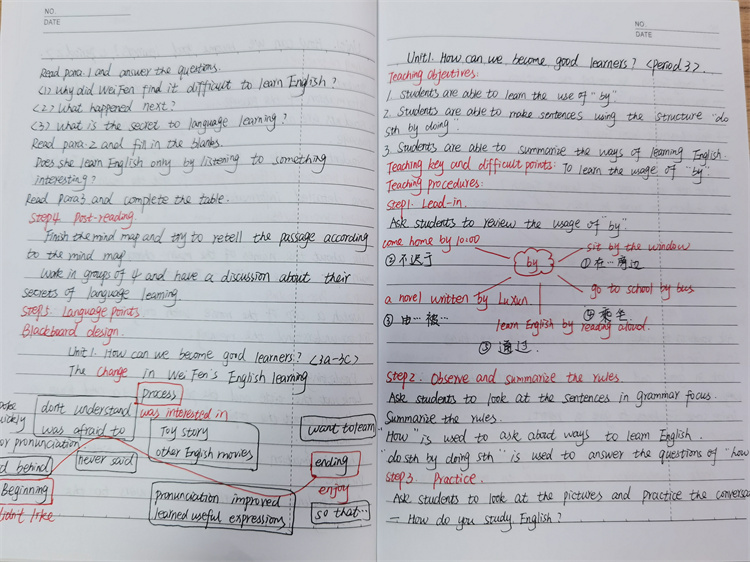 NO.
DATE
Read para.1 and answer the questions.
<1> Why did Wei Fen find it difficult to learn English?
<2> What happened next?
<3> What is the secret to language learning?
Read para.2 and fill in the blanks.
Does she learn English only by listening to something
interesting?
Read Para3 and complete the table.
Step4. Post-reading.
Finish the mind map and try to retell the passage according
to the mind map
Work in groups of 4 and have a discussion about their
secrets of language learning
Step5. Language Points.
Blackboard design.
Unit 1. How can we become good learners? <3a-3c>
The change in Wei Fen's English learning
process
don't understand
was afraid to
was interested in
Toy story
other English movies
want to learn
pronunciation
behind
never said
ending
Beginning
enjoy
pronunciation improved
learned useful expressions
so that...
didn't like
NO.
DATE
Unit1. How can we become good learners? <Period 3>.
Teaching objectives:
1. Students are able to learn the use of "by"
2. Students are able to make sentences using the structure "do
sth by doing".
3. Students are able to summarize the ways of learning English.
Teaching key and difficult points: To learn the usage of "by".
Teaching procedures:
Step1. Lead-in.
Ask students to review the usage of "by".
come home by 10:00
sit by the window
② 不迟于
by
① 在…旁边
go to school by bus
a novel written by LuXun
④ 乘坐
③ 由…被…
learn English by reading aloud.
⑤ 通过.
Step2. Observe and summarize the rules.
Ask students to look at the sentences in grammar focus.
Summarize the rules.
How is used to ask about ways to learn English.
"do sth by doing sth" is used to answer the questions of "how
Step3. Practice.
Ask students to look at the pictures and practice the conversa
— How do you study English?